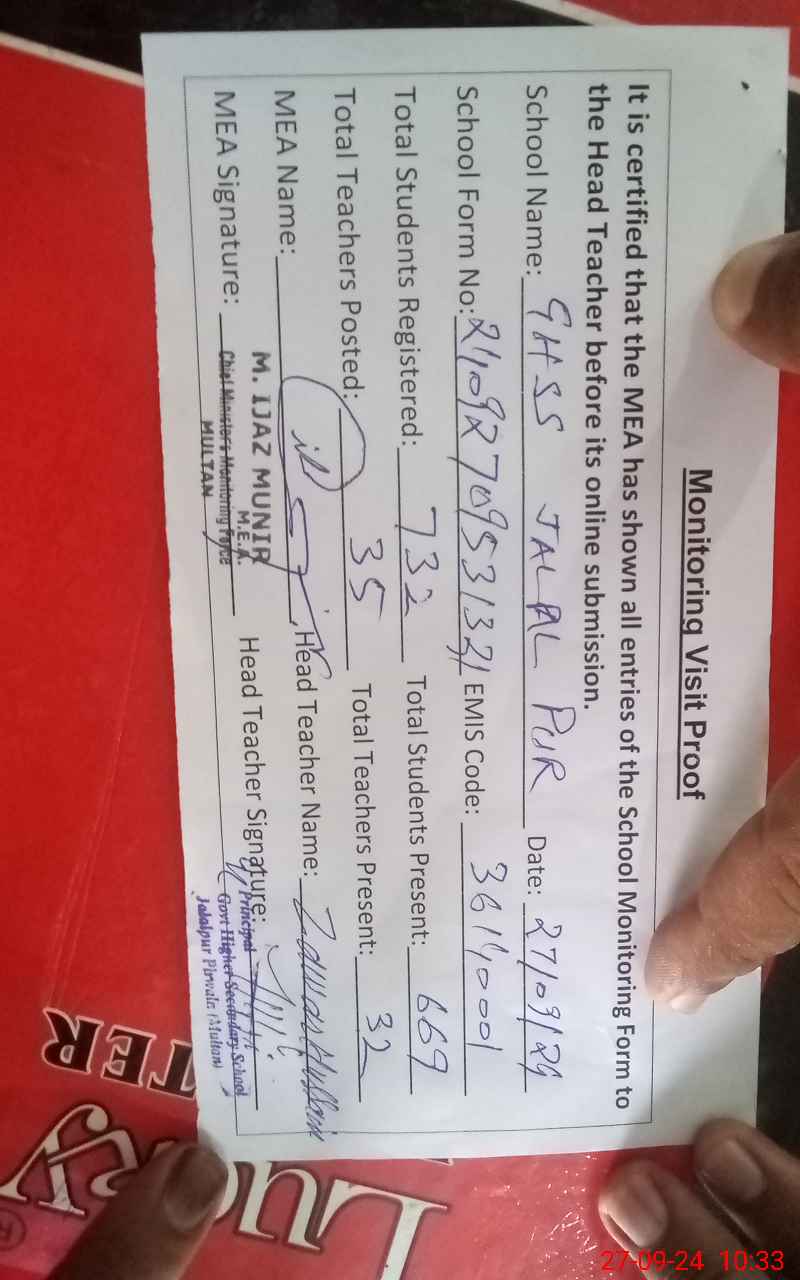 Monitoring Visit Proof
It is certified that the MEA has shown all entries of the School Monitoring Form to
the Head Teacher before its online submission.
School Name: GHSS JALAL PUR Date: 27/09/24
School Form No: EMIS Code:
Total Students Registered: 732 Total Students Present: 669
Total Teachers Posted: 35 Total Teachers Present: 32
MEA Name: Head Teacher Name:
MEA Signature: Head Teacher Signature:
M. IJAZ MUNIR
M.E.A.
Chief Minister's Monitoring Force
MULTAN
Principal
Govt Higher Secondary School
Jalalpur Pirwala (Multan)
TER
LU
27-09-24 10:33